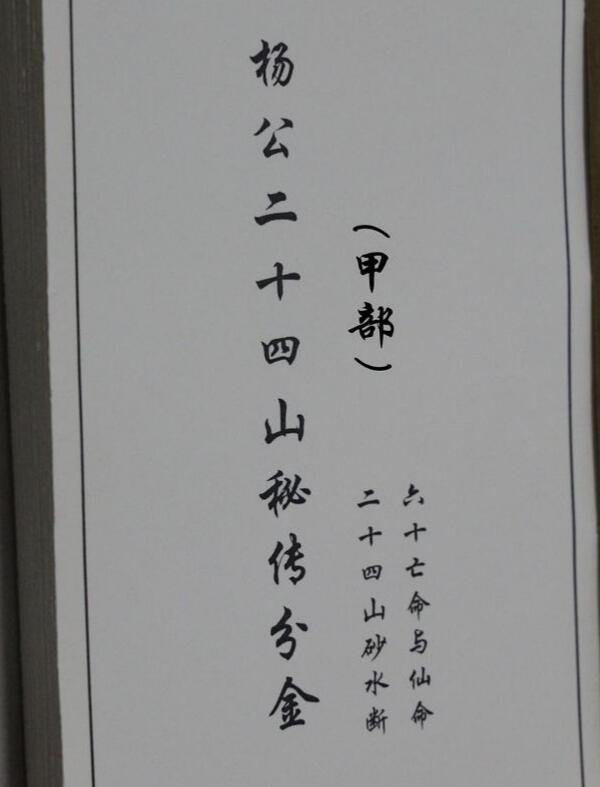 杨公二十四山秘传分金
（甲部）
六十亡命与仙命
二十四山砂水断